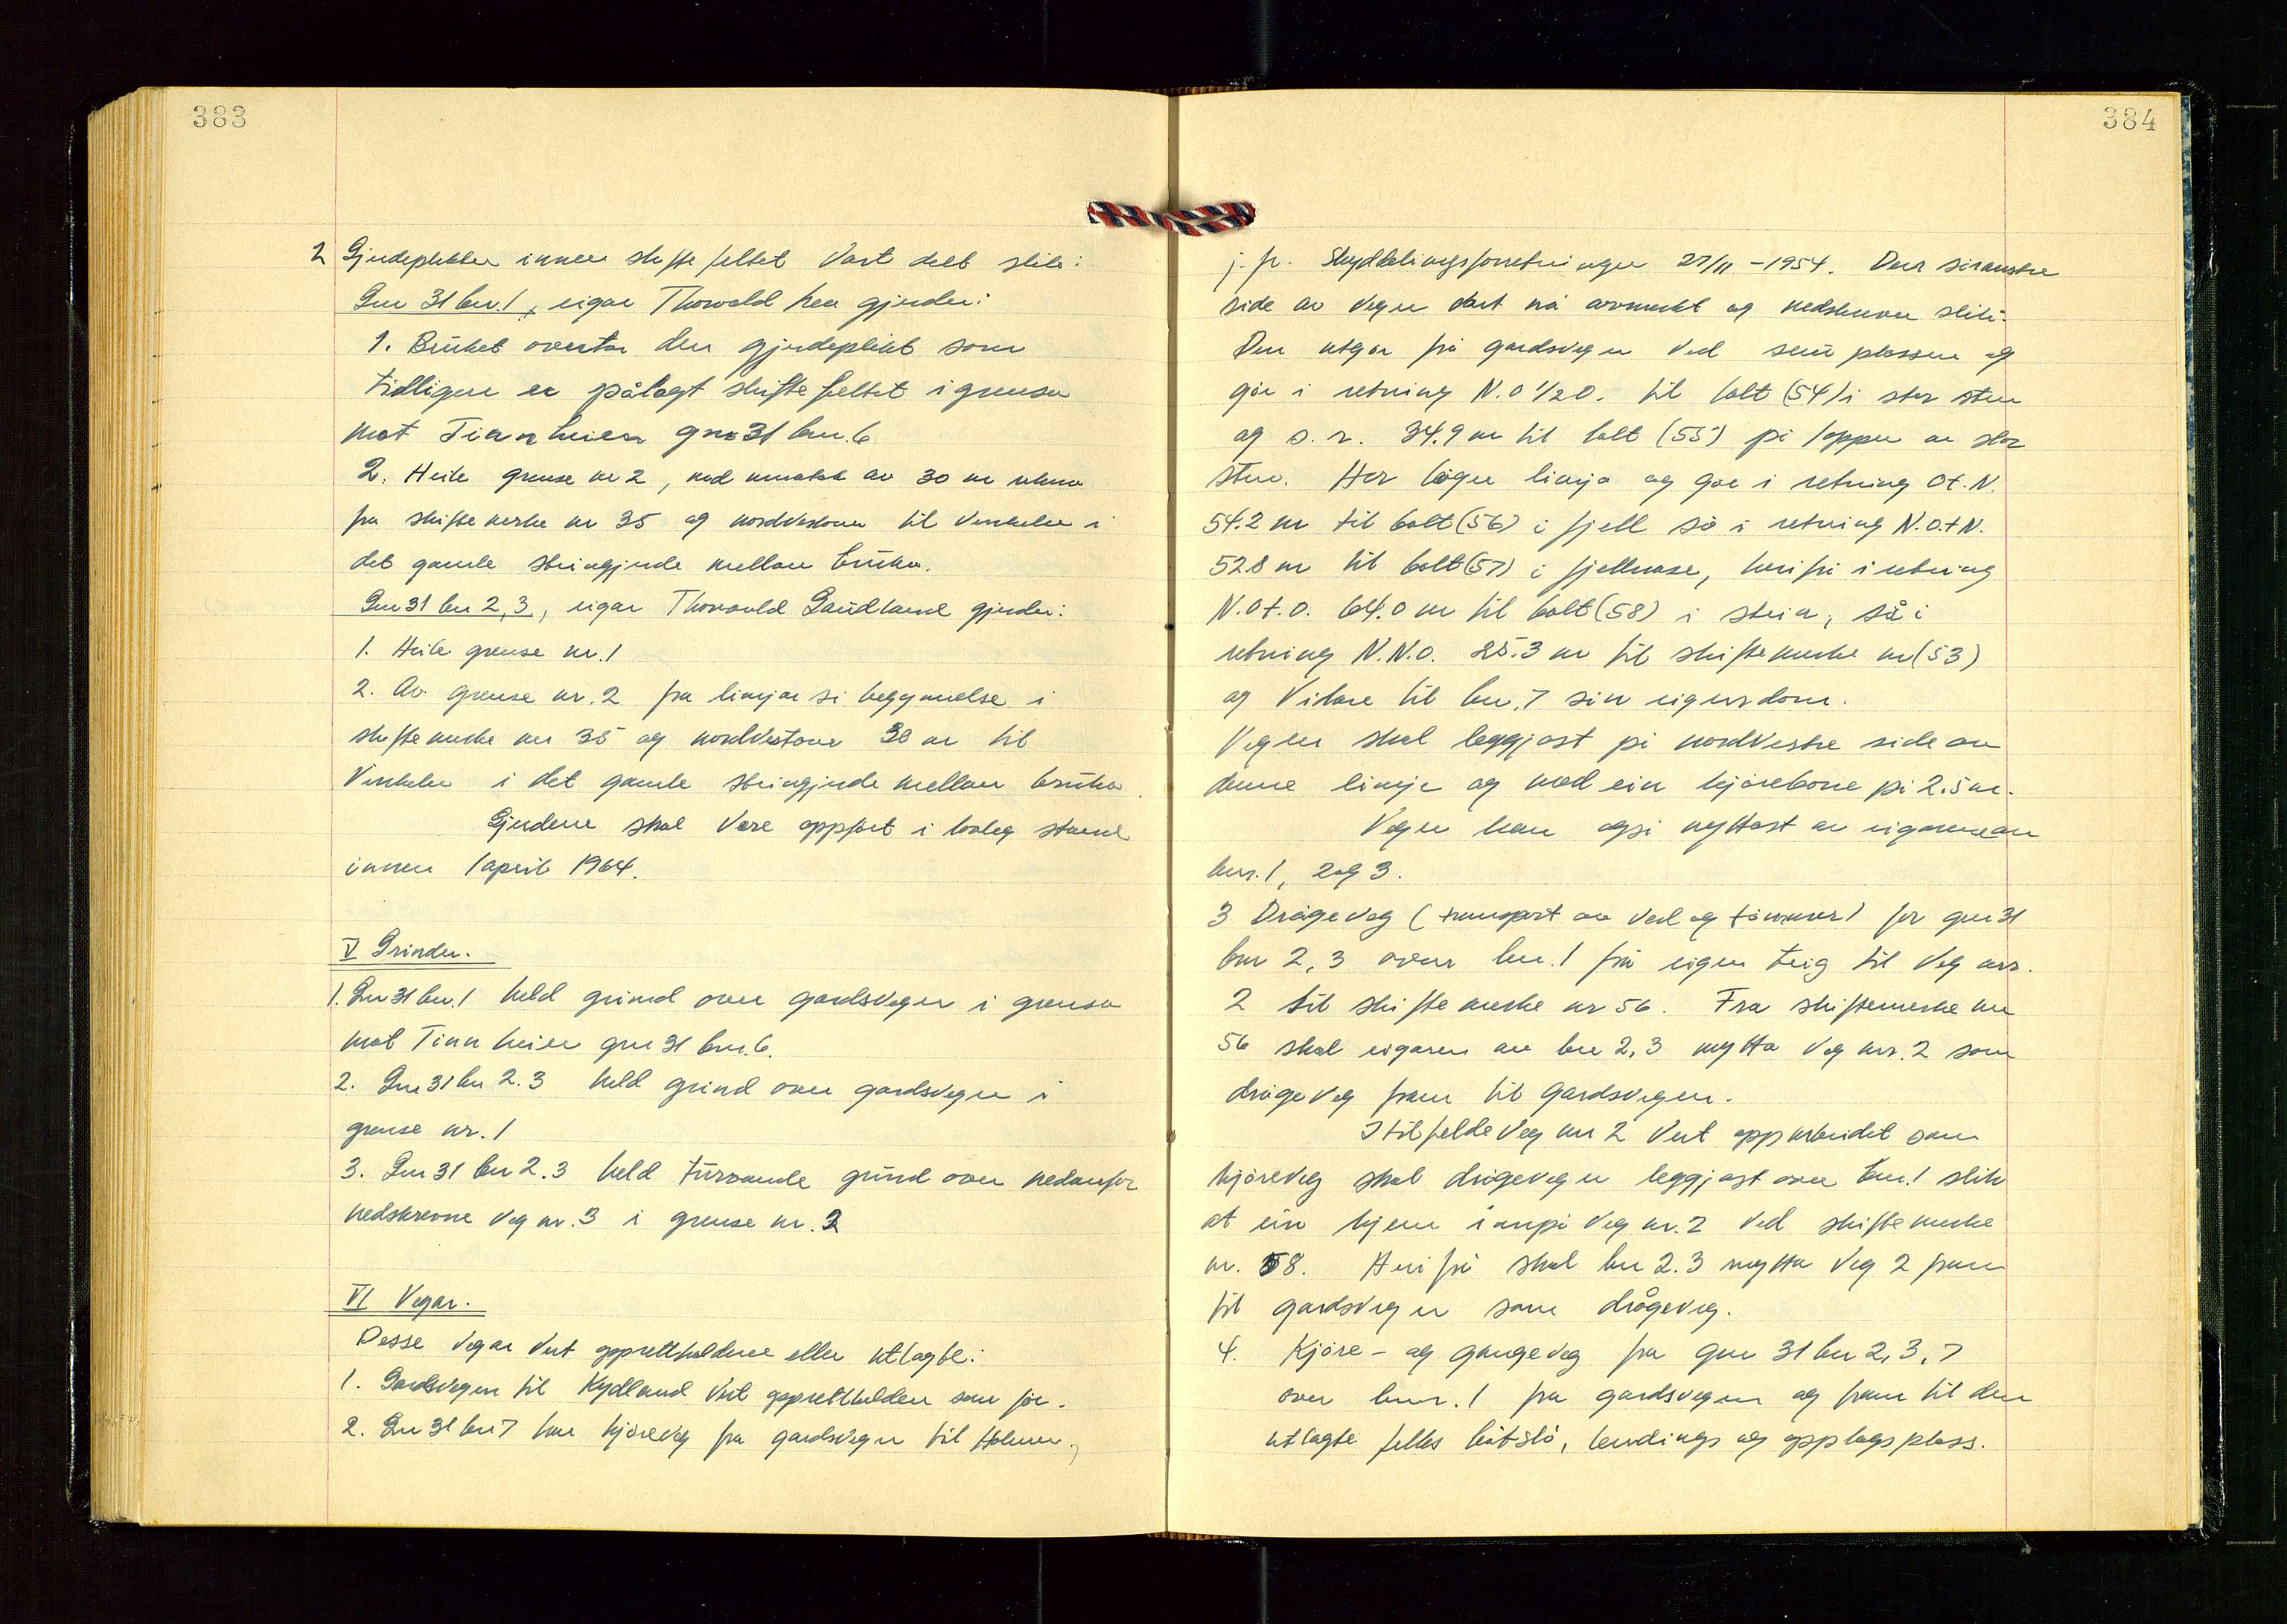 383
2 Gjerdeplikten innen skiftefeltet vart delt slik:
Gnr 31 bnr. 1, eigar Thorvald har gjerder:
1. Bruket overtar den gjerdeplikt som
tidligere er pålagt skiftefeltet i grensa
mot Tinnheien gnr 31 bnr. 6
2. Heile grense nr 2, med unntak av 30 m rekna
fra skiftemerke nr 35 og nordvestover til vinkelen i
det gamle steingjerde mellan bruka.
Gnr 31 bnr 2, 3, eigar Thorvald Gaudland gjerder:
1. Heile grense nr. 1
2. Av grense nr. 2 fra linja si begynnelse i
skiftemerke nr 35 og nordvestover 30 m til
vinkelen i det gamle steingjerde mellan bruka.
Gjerdene skal vere oppført i lovleg stand
innen 1 april 1964.
V Grinder.
1. Gnr 31 bnr. 1 held grind over gardsvegen i grensa
mot Tinnheien gnr 31 bnr. 6.
2. Gnr 31 bnr 2.3 held grind over gardsvegen i
grense nr. 1
3. Gnr 31 bnr 2.3 held turvande grind over nedanfor
nedskrevne veg nr. 3 i grense nr. 2
VI Vegar.
Desse vegar vert opprettholdne eller utlagte:
1. Gardsvegen til Kydland vert opprettholden som før.
2. Gnr 31 bnr 7 har kjøreveg fra gardsvegen til Holmen,
384
j.fr. Skylddelingsforretningen 27/11 - 1954. Den
side av vegen vart nå avmerkt og nedskreven slik:
Den utgår frå gardsvegen ved plassen og
går i retning N.O 1/2 O. til bolt (54) i stor sten
og s. r. 34.9 m til bolt (55) på toppen av stor
sten. Her bøyer linja og går i retning Ot.N.
54.2 m til bolt (56) i fjell så i retning N.O.t N.
52.8 m til bolt (57) i fjellnase, herifrå i retning
N.Ot.O. 64.0 m til bolt (58) i stein, så i
retning N.N.O. 25.3 m til skiftemerke nr (53)
og vidare til bnr. 7 sin eigendom.
Vegen skal leggjast på nordvestre side av
denne linje og med ein kjørebane på 2.5 m.
Vegen kan også nyttast av eigarene av
bnr. 1, 2 og 3.
3 Drågeveg (transport av ved og tømmer) for gnr 31
bnr 2, 3 over bnr. 1 frå eigen teig til veg nr.
2 til skiftemerke nr 56. Fra skiftemerke nr
56 skal eigaren av bnr 2, 3 nytta veg nr. 2 som
drågeveg fram til gardsvegen.
I tilfelde veg nr 2 vert opparbeidet som
kjøreveg skal drågevegen leggjast over bnr. 1 slik
at ein kjem innpå veg nr. 2 ved skiftemerke
nr. 58. Herifrå skal bnr 2.3 nytta veg 2 fram
til gardsvegen som drågeveg.
4. Kjøre- og gangeveg fra gnr 31 bnr 2, 3, 7
over bnr. 1 fra gardsvegen og fram til den
utlagte felles båtstø, lendings og opplagsplass.